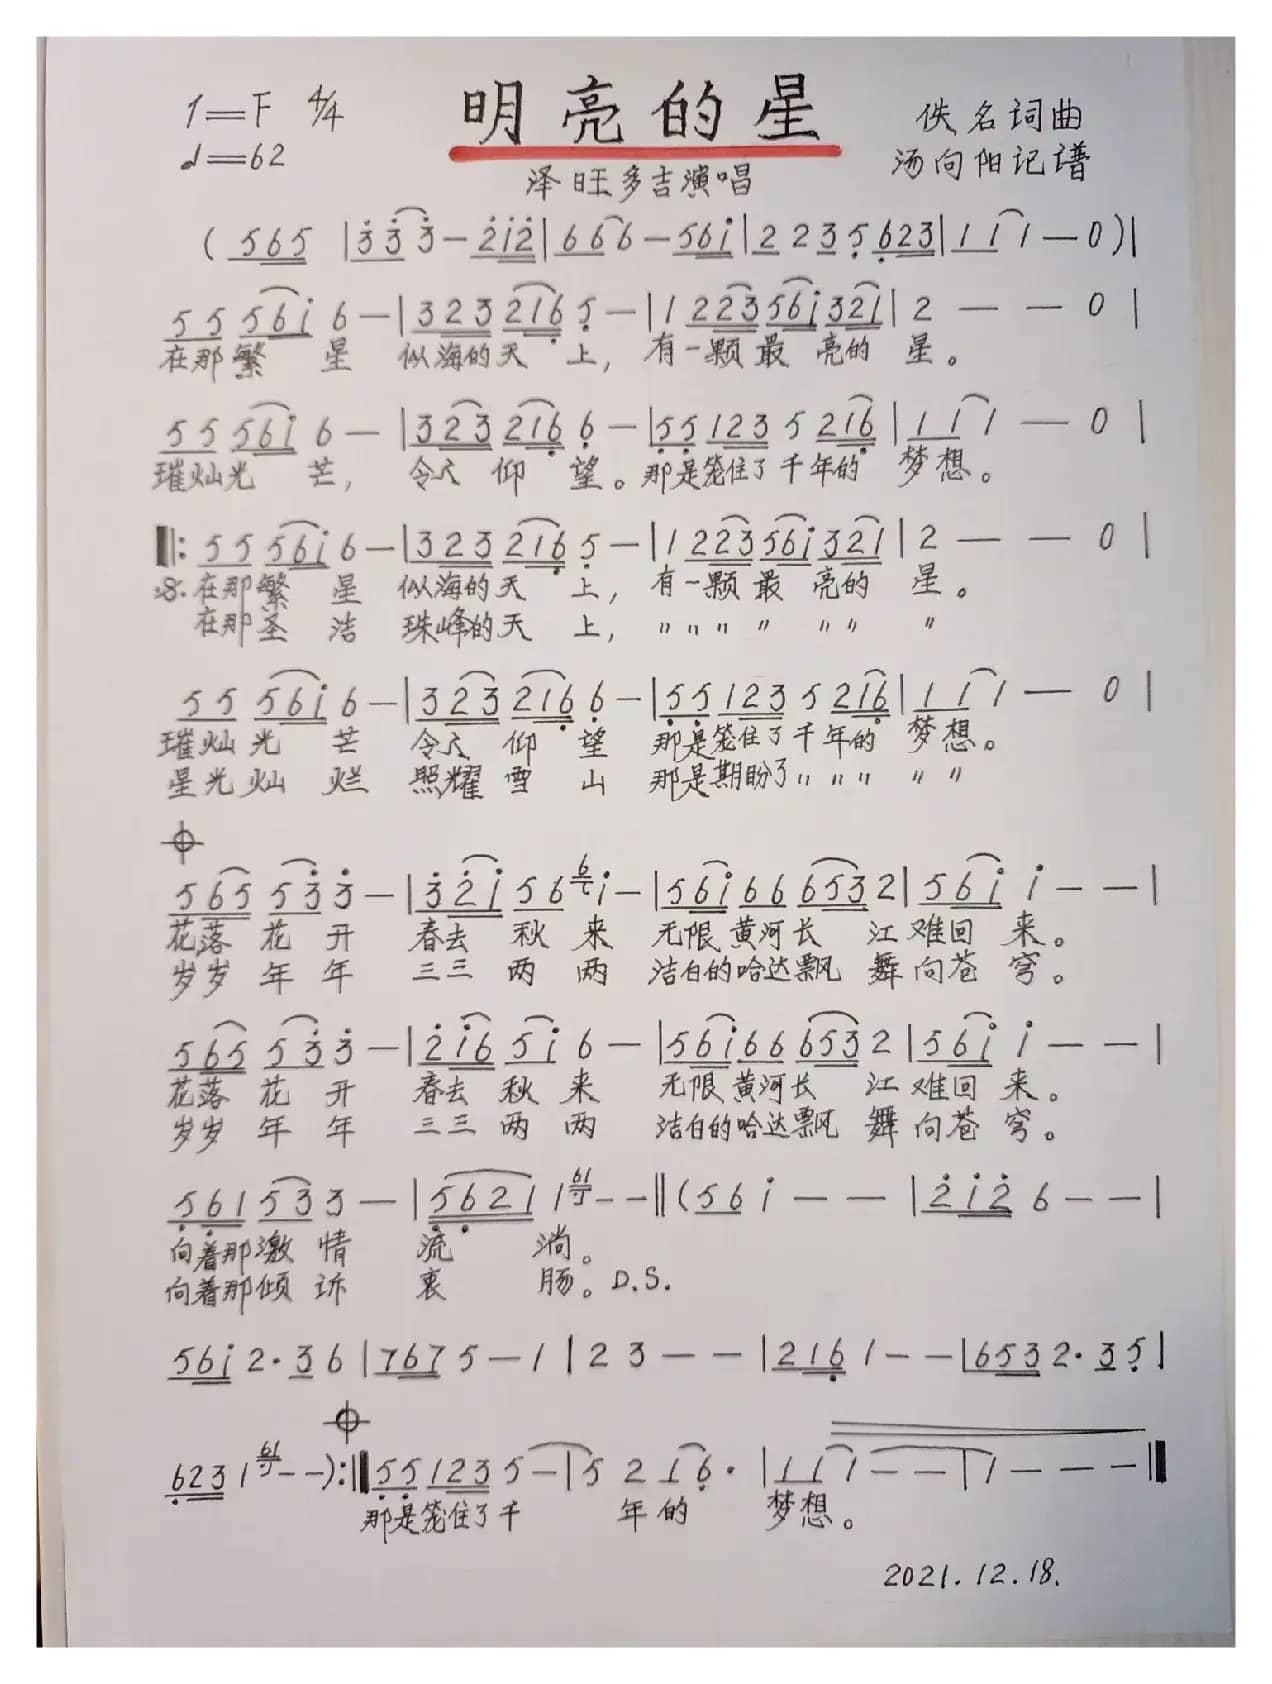 1=F 4/4 明亮的星 佚名词曲
♩=62 泽旺多吉演唱 汤向阳记谱
( 5 6 5 | 3̇ 3̇ 3̇ — 2̇ 1̇ 2̇ | 6 6 6 — 5 6 1̇ | 2 2 3 5̣ 6̣ 2 3 | 1 1 1 — 0 ) |
5 5 5 6 1̇ 6 — | 3 2 3 2 1 6̣ 5̣ — | 1 2 2 3 5 6 1̇ 3 2 1 | 2 — — 0 |
在那繁星 似海的天上, 有一颗最亮的星。
5 5 5 6 1̇ 6 — | 3 2 3 2 1 6̣ 6̣ — | 5̣ 5̣ 1 2 3 5 2 1 6̣ | 1 1 1 — 0 |
璀灿光芒, 令人仰望。那是笼住了千年的梦想。
‖: 5 5 5 6 1̇ 6 — | 3 2 3 2 1 6̣ 5̣ — | 1 2 2 3 5 6 1̇ 3 2 1 | 2 — — 0 |
𝄋. 在那繁星 似海的天上, 有一颗最亮的星。
在那圣洁 珠峰的天上, 〃〃〃〃〃〃〃
5 5 5 6 1̇ 6 — | 3 2 3 2 1 6̣ 6̣ — | 5̣ 5̣ 1 2 3 5 2 1 6̣ | 1 1 1 — 0 |
璀灿光芒 令人仰望 那是笼住了千年的梦想。
星光灿烂 照耀雪山 那是期盼了〃〃〃〃〃
𝄌
5 6 5 5 3̇ 3̇ — | 3̇ 2̇ 1̇ 5 6 6 1̇ — | 5 6 1̇ 6 6 6 5 3 2 | 5 6 1̇ 1̇ — — |
花落花开 春去秋来 无限黄河长江难回来。
岁岁年年 三三两两 洁白的哈达飘舞向苍穹。
5 6 5 5 3̇ 3̇ — | 2̇ 1̇ 6 5 1̇ 6 — | 5 6 1̇ 6 6 6 5 3 2 | 5 6 1̇ 1̇ — — |
花落花开 春去秋来 无限黄河长江难回来。
岁岁年年 三三两两 洁白的哈达飘舞向苍穹。
5̣ 6̣ 1 5 3 3 — | 5̣ 6̣ 2 1 1 61 — — ‖ ( 5 6 1̇ — — | 2̇ 1̇ 2̇ 6 — — |
向着那激情流淌。
向着那倾诉衷肠。D.S.
5 6 1̇ 2 · 3 6 | 7 6 7 5 — 1 | 2 3 — — | 2 1 6̣ 1 — — | 6 5 3 2 · 3 5̣ |
𝄌
6̣ 2 3 1 61 — — ) :‖ 5̣ 5̣ 1 2 3 5 — | 5 2 1 6̣ · | 1 1 1 — — | 1 — — — ‖
那是笼住了千年的梦想。
2021.12.18.